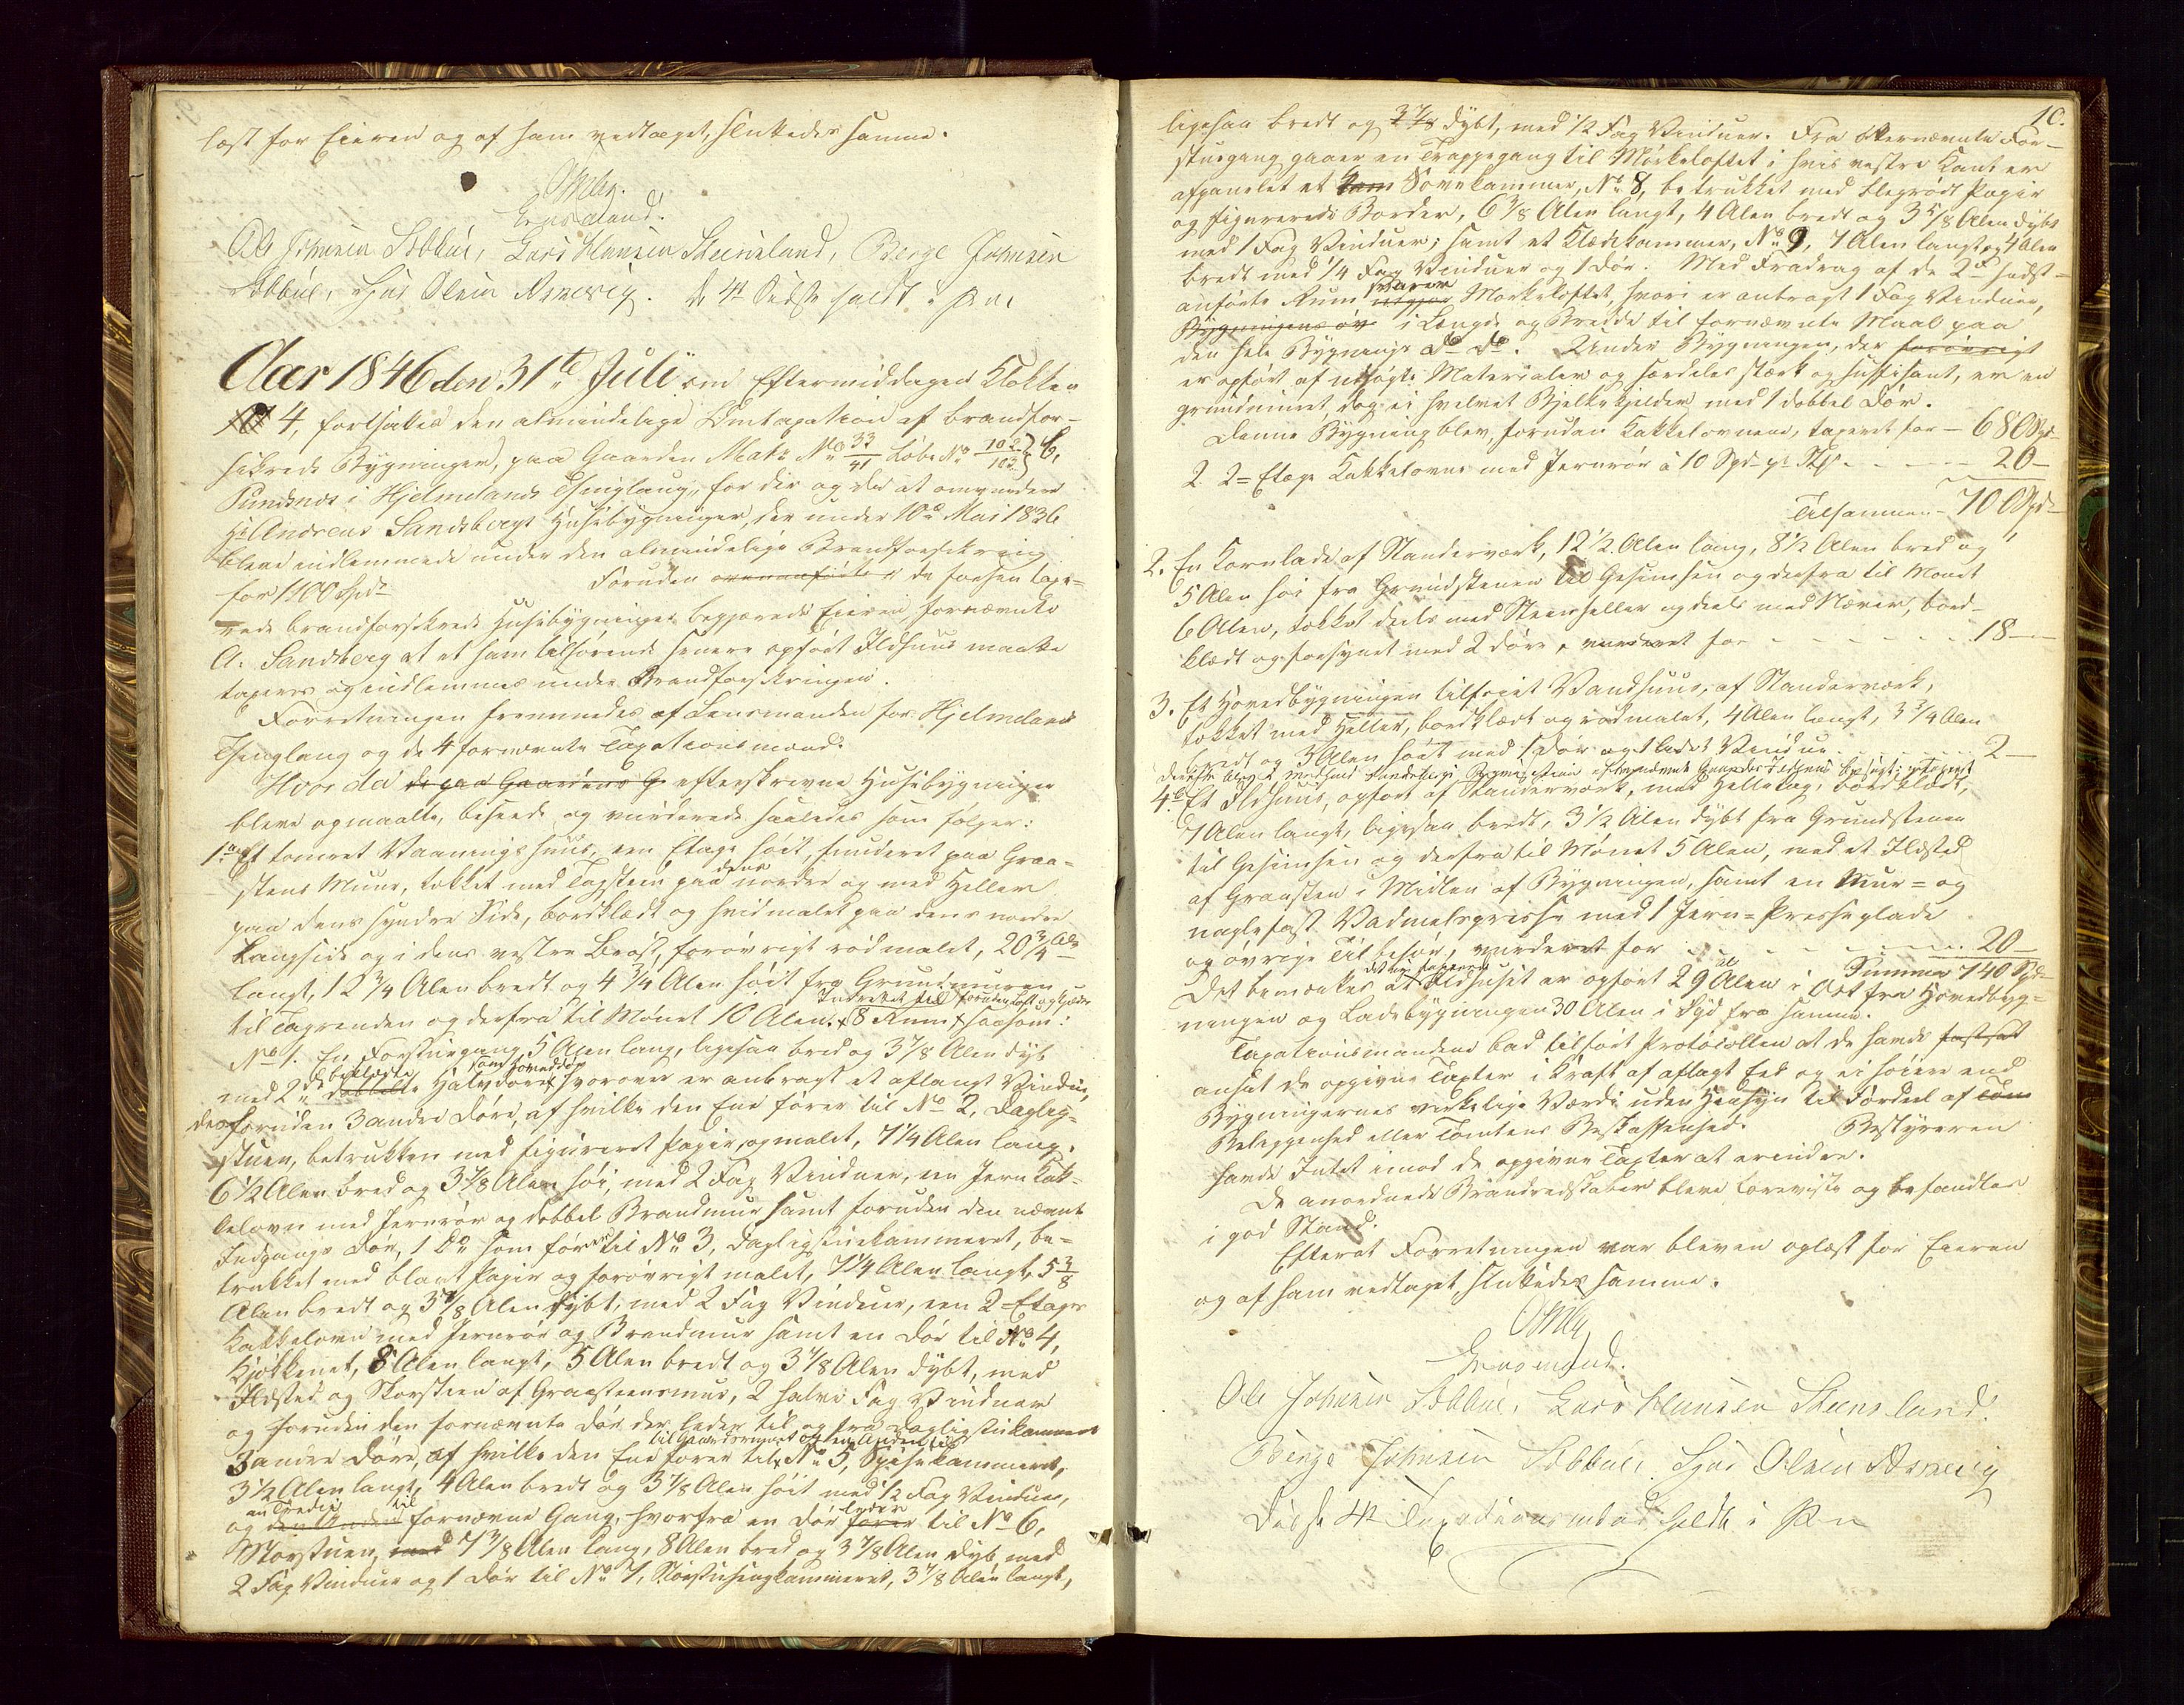 læst for Eieren og af ham vedtaget, sluttedes samme.
Lensmand.
Ole Johnsen Sobbue, Lars Hansen Steensland, Berge Johnsen
Sobbue, Sjur Olsen Asnevig. de 4re Sidste holdt i Pen
Aar 1846 den 31te Juli om Eftermiddagen Klokken
4, fortsattes den almindelige Omtaxation af brandfor-
sikrede Bygninger, paa Gaarden Matr. No 33/41 Løbe No 102/103 b,
Pundsnæs i Hjelmelands Thinglaug, for der og da at omvurdere
Hr Andreas Sandbergs Huusbygninger, der under 10de Mai 1836
bleve indlemmede under den almindelige Brandforsikring
for 1100 Spd. Foruden ovenanførte de forhen taxe-
rede brandforsikrede Huusbygninger begjærede Eieren, fornævnte
A. Sandberg at et ham tilhørende senere opført Ildhuus maatte
taxeres og indlemmes under Brandforsikringen.
Forretningen fremmedes af Lensmanden for Hjelmelands
Thinglaug og de 4 fornævnte Taxationsmænd.
Hvor da de paa Gaardens G efterskrevne Huusbygninger
bleve opmaalte, beseede og vurderede saaledes som følger:
1. Et tømret Vaaningshuus, een Etage høit, funderet paa Graa-
steens Muur, tækket med Tagsteen paa dens nordre og med Heller
paa dens syndre Side, bordklædt og hvidmalet paa dens nordre
Langside og i dens vestre Brøst, forøvrigt rødmalet, 20 3/4 Al.
langt, 12 3/4 Alen bredt og 4 3/4 Alen høit fra Grundmuren
Indrettet til foruden Loft og Kjelder
til Tagrenden og derfra til Mønet 10 Alen. 8 Rum saasom:
No 1. En Forstuegang 5 Alen lang, ligesaa bred og 3 7/8 Alen dyb
beklædte som Hoveddør
med 2de dobbelte Halvdøre hvorover er anbragt et aflangt Vindue,
desforuden 3 andre Døre, af hvilke den Ene fører til No 2, Daglig-
stuen, betrukken med figureret Papir, og malet, 7 1/4 Alen lang,
6 1/2 Alen bred og 3 7/8 Alen høi, med 2 Fag Vinduer, en Jern Kak-
kelovn med Jernrør og dobbel Brandmuur samt foruden den nævnte
Indgangs Dør, 1 Do som fører til No 3, Dagligstuekammeret, be-
trukket med blaat Papir og forøvrigt malet, 7 1/4 Alen langt, 5 3/8
Alen bredt og 3 7/8 Alen dybt, med 2 Fag Vinduer, een 2-Etages
Kakkelovn med Jernrør og Brandmuur samt en Dør til No 4,
Kjøkkenet, 8 Alen langt, 5 Alen bredt og 3 7/8 Alen dybt, med
Ildsted og Skorsteen af Graasteensmuur, 2 halve Fag Vinduer
og foruden den fornævnte Dør der leder til og fra Dagligstuekammeret
til Gaardsrummet og en Anden til
3 andre Døre, af hvilke den Ene fører til No 5, Spisekammeret,
3 1/2 Alen langt, 4 Alen bredt og 3 7/8 Alen høit med 1/2 Fag Vinduer,
en Tredie til leder
og den Anden fornævne Gang, hvorfra en Dør fører til No 6,
Storstuen, med 7 3/8 Alen lang, 8 Alen bred og 3 7/8 Alen dyb med
2 Fag Vinduer og 1 Dør til No 7, Storstuesengkammeret, 3 7/8 Alen langt,
10.
ligesaa bredt og 3 7/8 dybt, med 1/2 Fag Vinduer. Fra bemeldte For-
stuegang gaaer en Trappegang til Mørkeloftet i hvis vestre Kant er
afpanelet et Kam Sovekammer, No 8, betrukket med blegrødt Papir
og figurerede Border, 6 3/8 Alen langt, 4 Alen bredt og 3 5/8 Alen dybt
med 1 Fag Vinduer; samt et Klædekammer, No 9, 7 Alen langt og 4 Alen
bredt med 1/4 Fag Vinduer og 1 Dør. Med Fradrag af de 2de sidst-
svarer
anførte Rum udgjør Mørkeloftet, hvori er anbragt 1 Fag Vinduer,
Bygningens øv i Længde og Bredde til fornævnte Maal paa
den hele Bygnings Do Do. Under Bygningen, der forøvrigt
er opført af udsøgte Materialer og særdeles stærk og suffisant, er en
grundmuret dog ei hvelvet Bjelkekjelder med 1 dobbel Dør.
Denne Bygning blev, foruden Kakkelovnene, taxeret for - 680 Spd.
2 2-Etages Kakkelovne med Jernrør á 10 Spd. pr. Stk. - - - 20 -
Tilsammen - 700 Spd.
2. En Kornlade af Standerværk, 12 1/2 Alen lang, 8 1/2 Alen bred og
5 Alen høi fra Grundstenen til Gesimsen og derfra til Mønet
6 Alen, tækket deels med Steenheller og deels med Næver, bord-
klædt og forsynet med 2 Døre, vurderet for - - - - - - 18 -
3. Et Hovedbygningen tilføiet Vandhuus, af Standerværk,
tækket med Heller, bordklædt og rødmalet, 4 Alen langt, 3 3/4 Alen
bredt og 3 Alen høit med 1 Dør og 1 lidet Vindue - - - - 2 -
4. Et Ildhuus, opført af Standerværk, med Helletag, bordklædt,
7 Alen langt, ligesaa bredt, 3 1/2 Alen dybt fra Grundstenen
til Gesimsen og derfra til Mønet 5 Alen, med et Ildsted
af Graasteen i Midten af Bygningen, samt en Muur- og
naglefast Vadmelspresse med 1 Jern-Presseplade
og øvrige Tilbehør, vurderet for - - - - - - 20 -
Summa 740 Spd.
Det bemærkes at Ildhuset er opført 29 Alen i Ost fra Hovedbyg-
ningen og Ladebygningen 30 Alen i Syd fra samme.
Taxationsmændene bad tilført Protocollen at de havde fastsat
ansat de opgivne Taxter i Kraft af aflagt Eed og ei høiere end
Bygningernes virkelige Værdi uden Hensyn til Fordeel af Tom
Beliggenhed eller Tomtens Beskaffenhed. Bestyreren
havde Intet imod de opgivne Taxter at erindre.
De anordnede Brandredskaber bleve foreviste og befandtes
i god Stand.
Efterat Forretningen var bleven oplæst for Eieren
og af ham vedtaget, sluttedes samme.
Lensmand.
Ole Johnsen Sobbue, Lars Hansen Steensland.
Berge Johnsen Sobbue, Sjur Olsen Asnevig
Disse 4re Taxationsmænd holdt i Pen